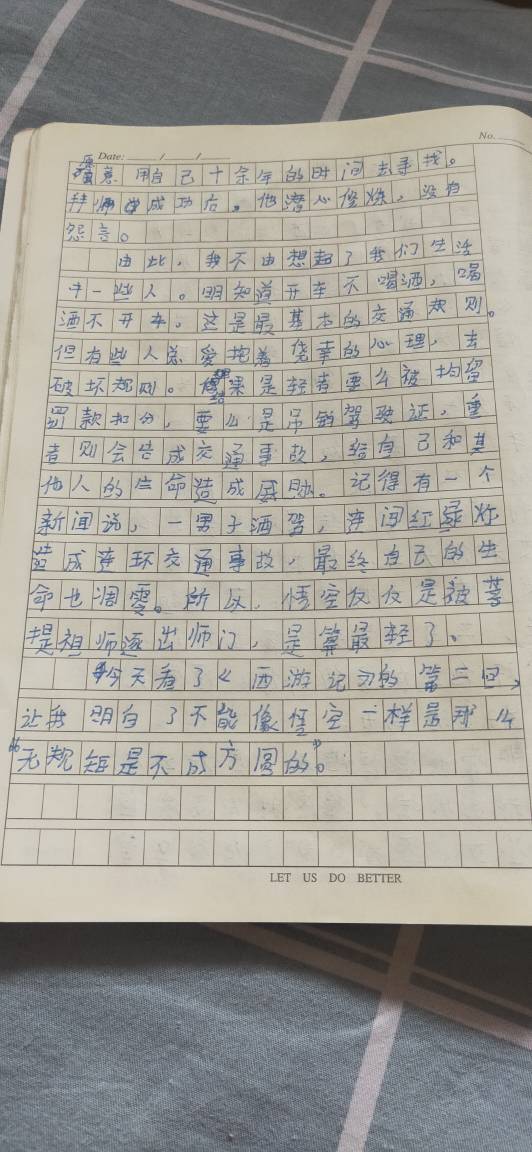 No.
Date:
愿意 用自己十余年的时间去寻找。
拜师成功后。他潜心修炼，没有
怨言。
由此，我不由想起了我们生活
中一些人。明知道开车不喝酒，喝
酒不开车。这是最基本的交通规则。
但有些人总爱抱着侥幸的心理，去
破坏规则。结果是轻者要么被拘留
罚款扣分，要么是吊销驾驶证，重
者则会造成交通事故，给自己和其
他人的生命造成威胁。记得有一个
新闻说，一男子酒驾，连闯红绿灯
造成连环交通事故，最终自己的生
命也凋零。所以，悟空仅仅是被菩
提祖师逐出师门，是算最轻了。
今天看了《西游记》的第二回，
让我明白了不能像悟空一样是那么
“无规矩是不成方圆的”。
LET US DO BETTER